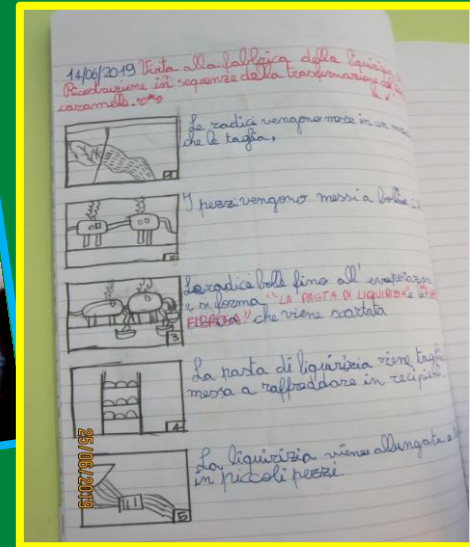 14/06/2019 Visita alla fabbrica della liquirizia
Ricostruzione in sequenze della trasformazione
caramella.
Le radici vengono messe in un
che le taglia.
1
I pezzi vengono messi a bollire in
2
La radice bolle fino all'evaporazion
e si forma "LA PASTA DI LIQUIRIZIA" e
che viene scartata
3
La pasta di liquirizia viene tagli
messa a raffreddare in recipien
4
La liquirizia viene allungata e
in piccoli pezzi.
5
25/06/2019